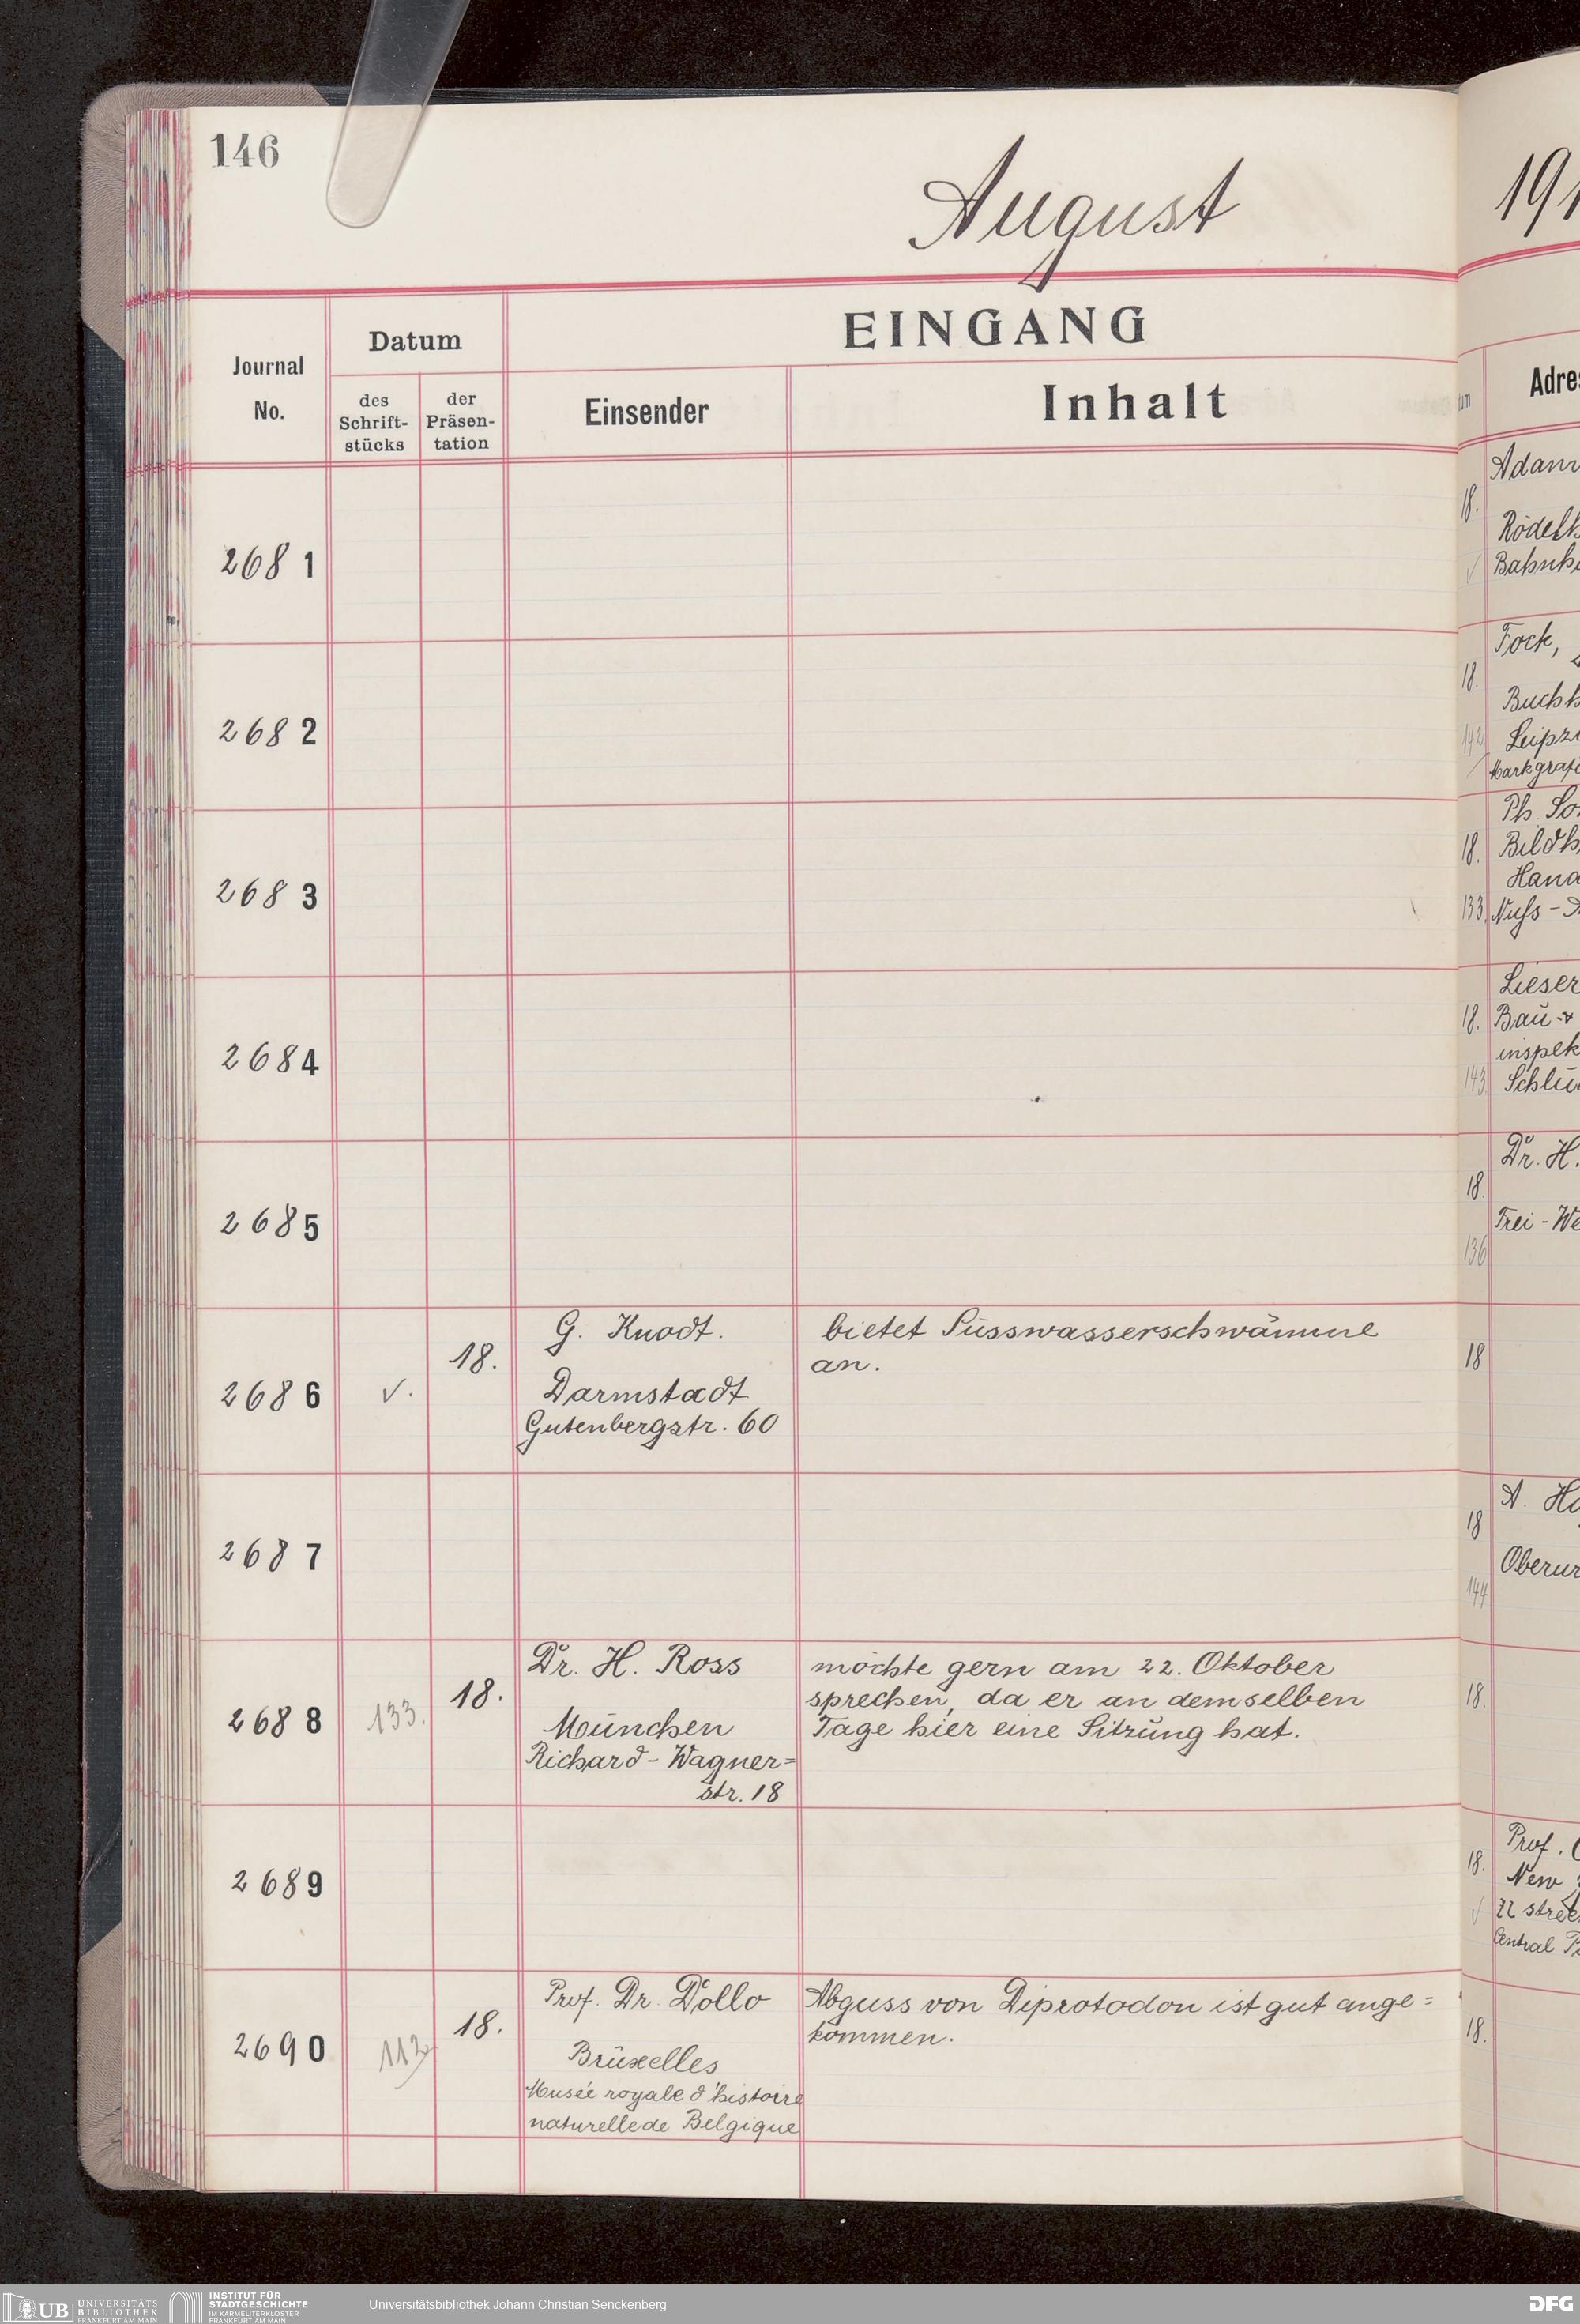 146
August
Journal
No.
Datum
des
Schrift-
stücks
der
Präsen-
tation
EINGANG
Einsender
Inhalt
2681
2682
2683
2684
2685
2686
√.
18.
G. Knodt.
Darmstadt
Gutenbergstr. 60
bietet Süsswasserschwämme
an.
2687
2688
133.
18.
Dr. H. Ross
München
Richard-Wagner=
str. 18
möchte gern am 22. Oktober
sprechen, da er an demselben
Tage hier eine Sitzung hat.
2689
2690
112
18.
Prof. Dr. Dollo
Bruxelles
Musée royale d'histoire
naturelle de Belgique
Abguss von Diprotodon ist gut ange=
kommen.
191
Adres
18.
Adam
Rödelh
Bahnho
18.
Fock,
Buchh
142
Leipzi
Markgrafe
Ph. So
18.
Bildh
Hana
133
Nuss-A
Lieser
18.
Bau- &
inspek
143
Schlü
Dr. H.
18.
Frei-We
136
18
A. Ha
18
Oberur
144
18.
Prof.
18.
New
√
77 stree
Central P
18.
UB
UNIVERSITÄTS
BIBLIOTHEK
FRANKFURT AM MAIN
INSTITUT FÜR
STADTGESCHICHTE
IM KARMELITERKLOSTER
FRANKFURT AM MAIN
Universitätsbibliothek Johann Christian Senckenberg
DFG